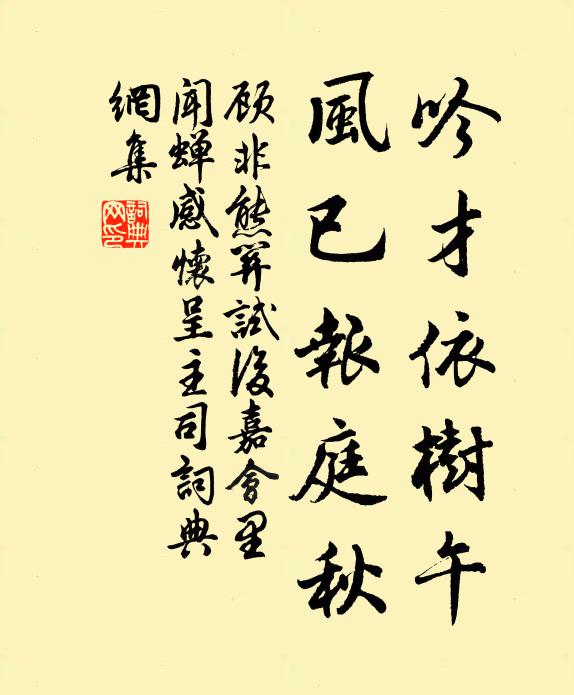 吟才依樹午
風已報庭秋
顾非熊䓁試後嘉會里
聞蟬感懷呈主司詞典
網集
詞典
网印